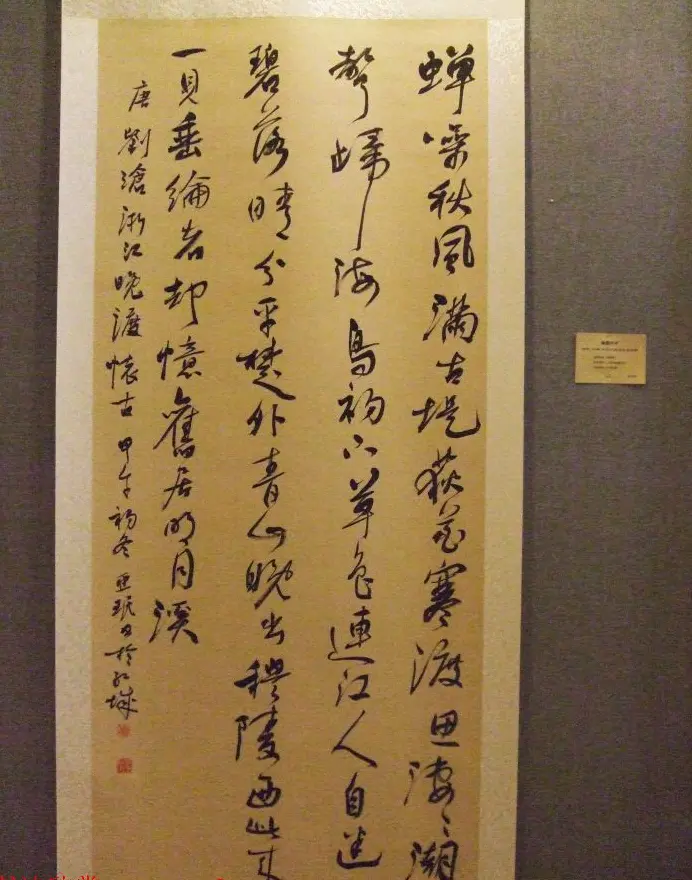 蝉噪秋風滿古堤荻花寒渡思凄〻潮
聲歸海鳥初下草色連江人自迷
碧落晴分平楚外青山晚出穆陵西此来
一見垂綸者却憶舊居明月溪
唐劉滄浙江晚渡懷古 甲午初冬 於 城